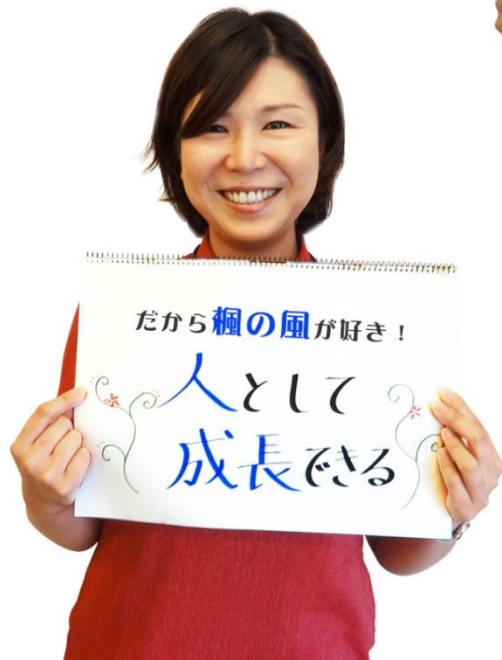 だから楓の風が好き！
人として
成長できる